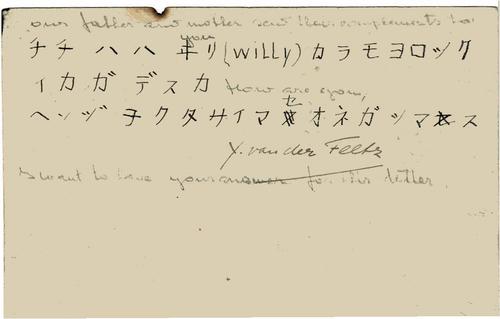 our father and mother send their complements to
you
チチ ハハ ヰリ(Willy)カラモヨロック
イカガ デスカ How are you,
ヘンヅ ヲクダサイマセ オネガツマス
Y. van der Feltz
I want to have your answer for this letter.